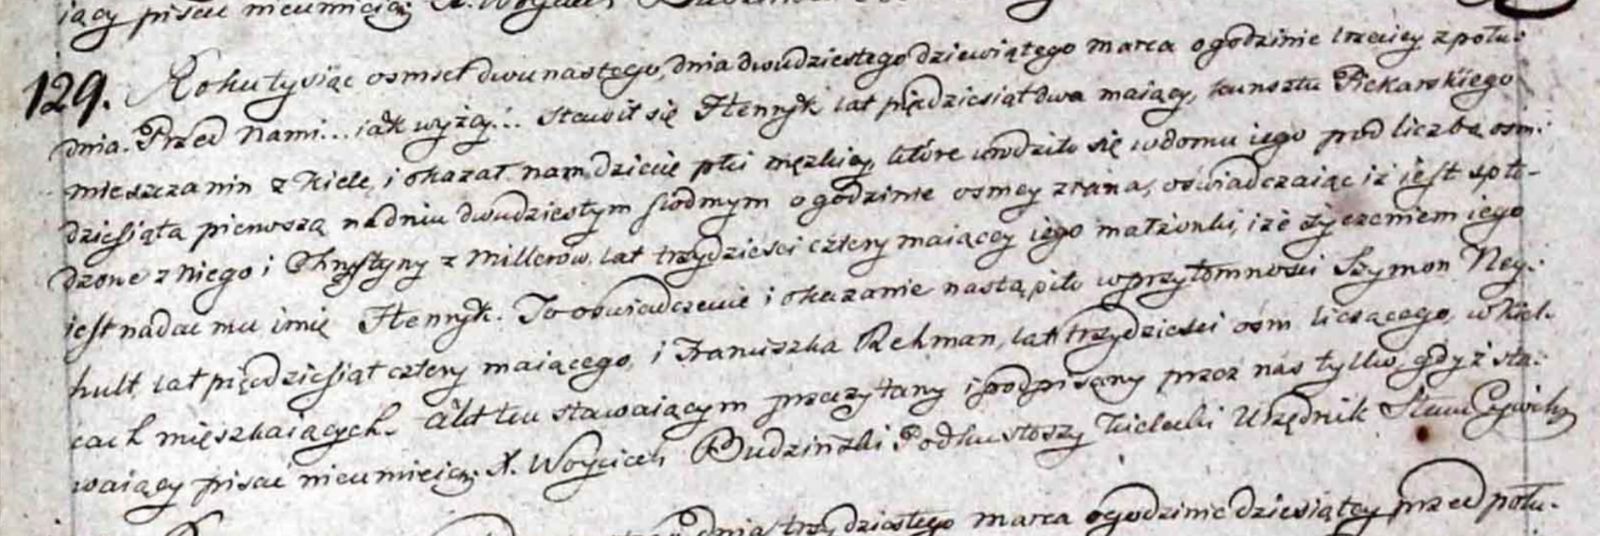 iący pisać nieumieią. X. Woyciech Budzinski
129. Roku tysiąc osmset dwunastego, dnia dwudziestego dziewiątego marca o godzinie trzeciey z połu-
dnia. Przed Nami... iak wyżey... stawił się Henryk lat pięćdziesiąt dwa maiący, kunsztu Piekarskiego
mieszczanin z Kielc, i okazał nam dziecie płci męzkiey, które urodziło się w domu iego pod liczbą osm:
dziesiątą pierwszą na dniu dwudziestym siodmym o godzinie osmey z rana, oświadczaiąc iż iest spło-
dzone z niego i Chrystyny z Millerow, lat trzydzieści cztery maiącey iego małżonki, i że życzeniem iego
iest nadać mu imię Henryk. To oświadczenie i okazanie nastąpiło w przytomności Szymon Ney:
hult lat pięćdziesiąt cztery maiącego, i Franciszka Rehman, lat trzydzieści osm liczącego, w Kiel-
cach mięszkaiących. Akt ten stawaiącym przeczytany i podpisany przez nas tylko, gdyż sta:
waiący pisać nieumieią. X. Woyciech Budzinski Podkustoszy Kielecki Urzędnik Stanu Cywiln
dnia trzydziestego marca o godzinie dziesiątey przed połu-